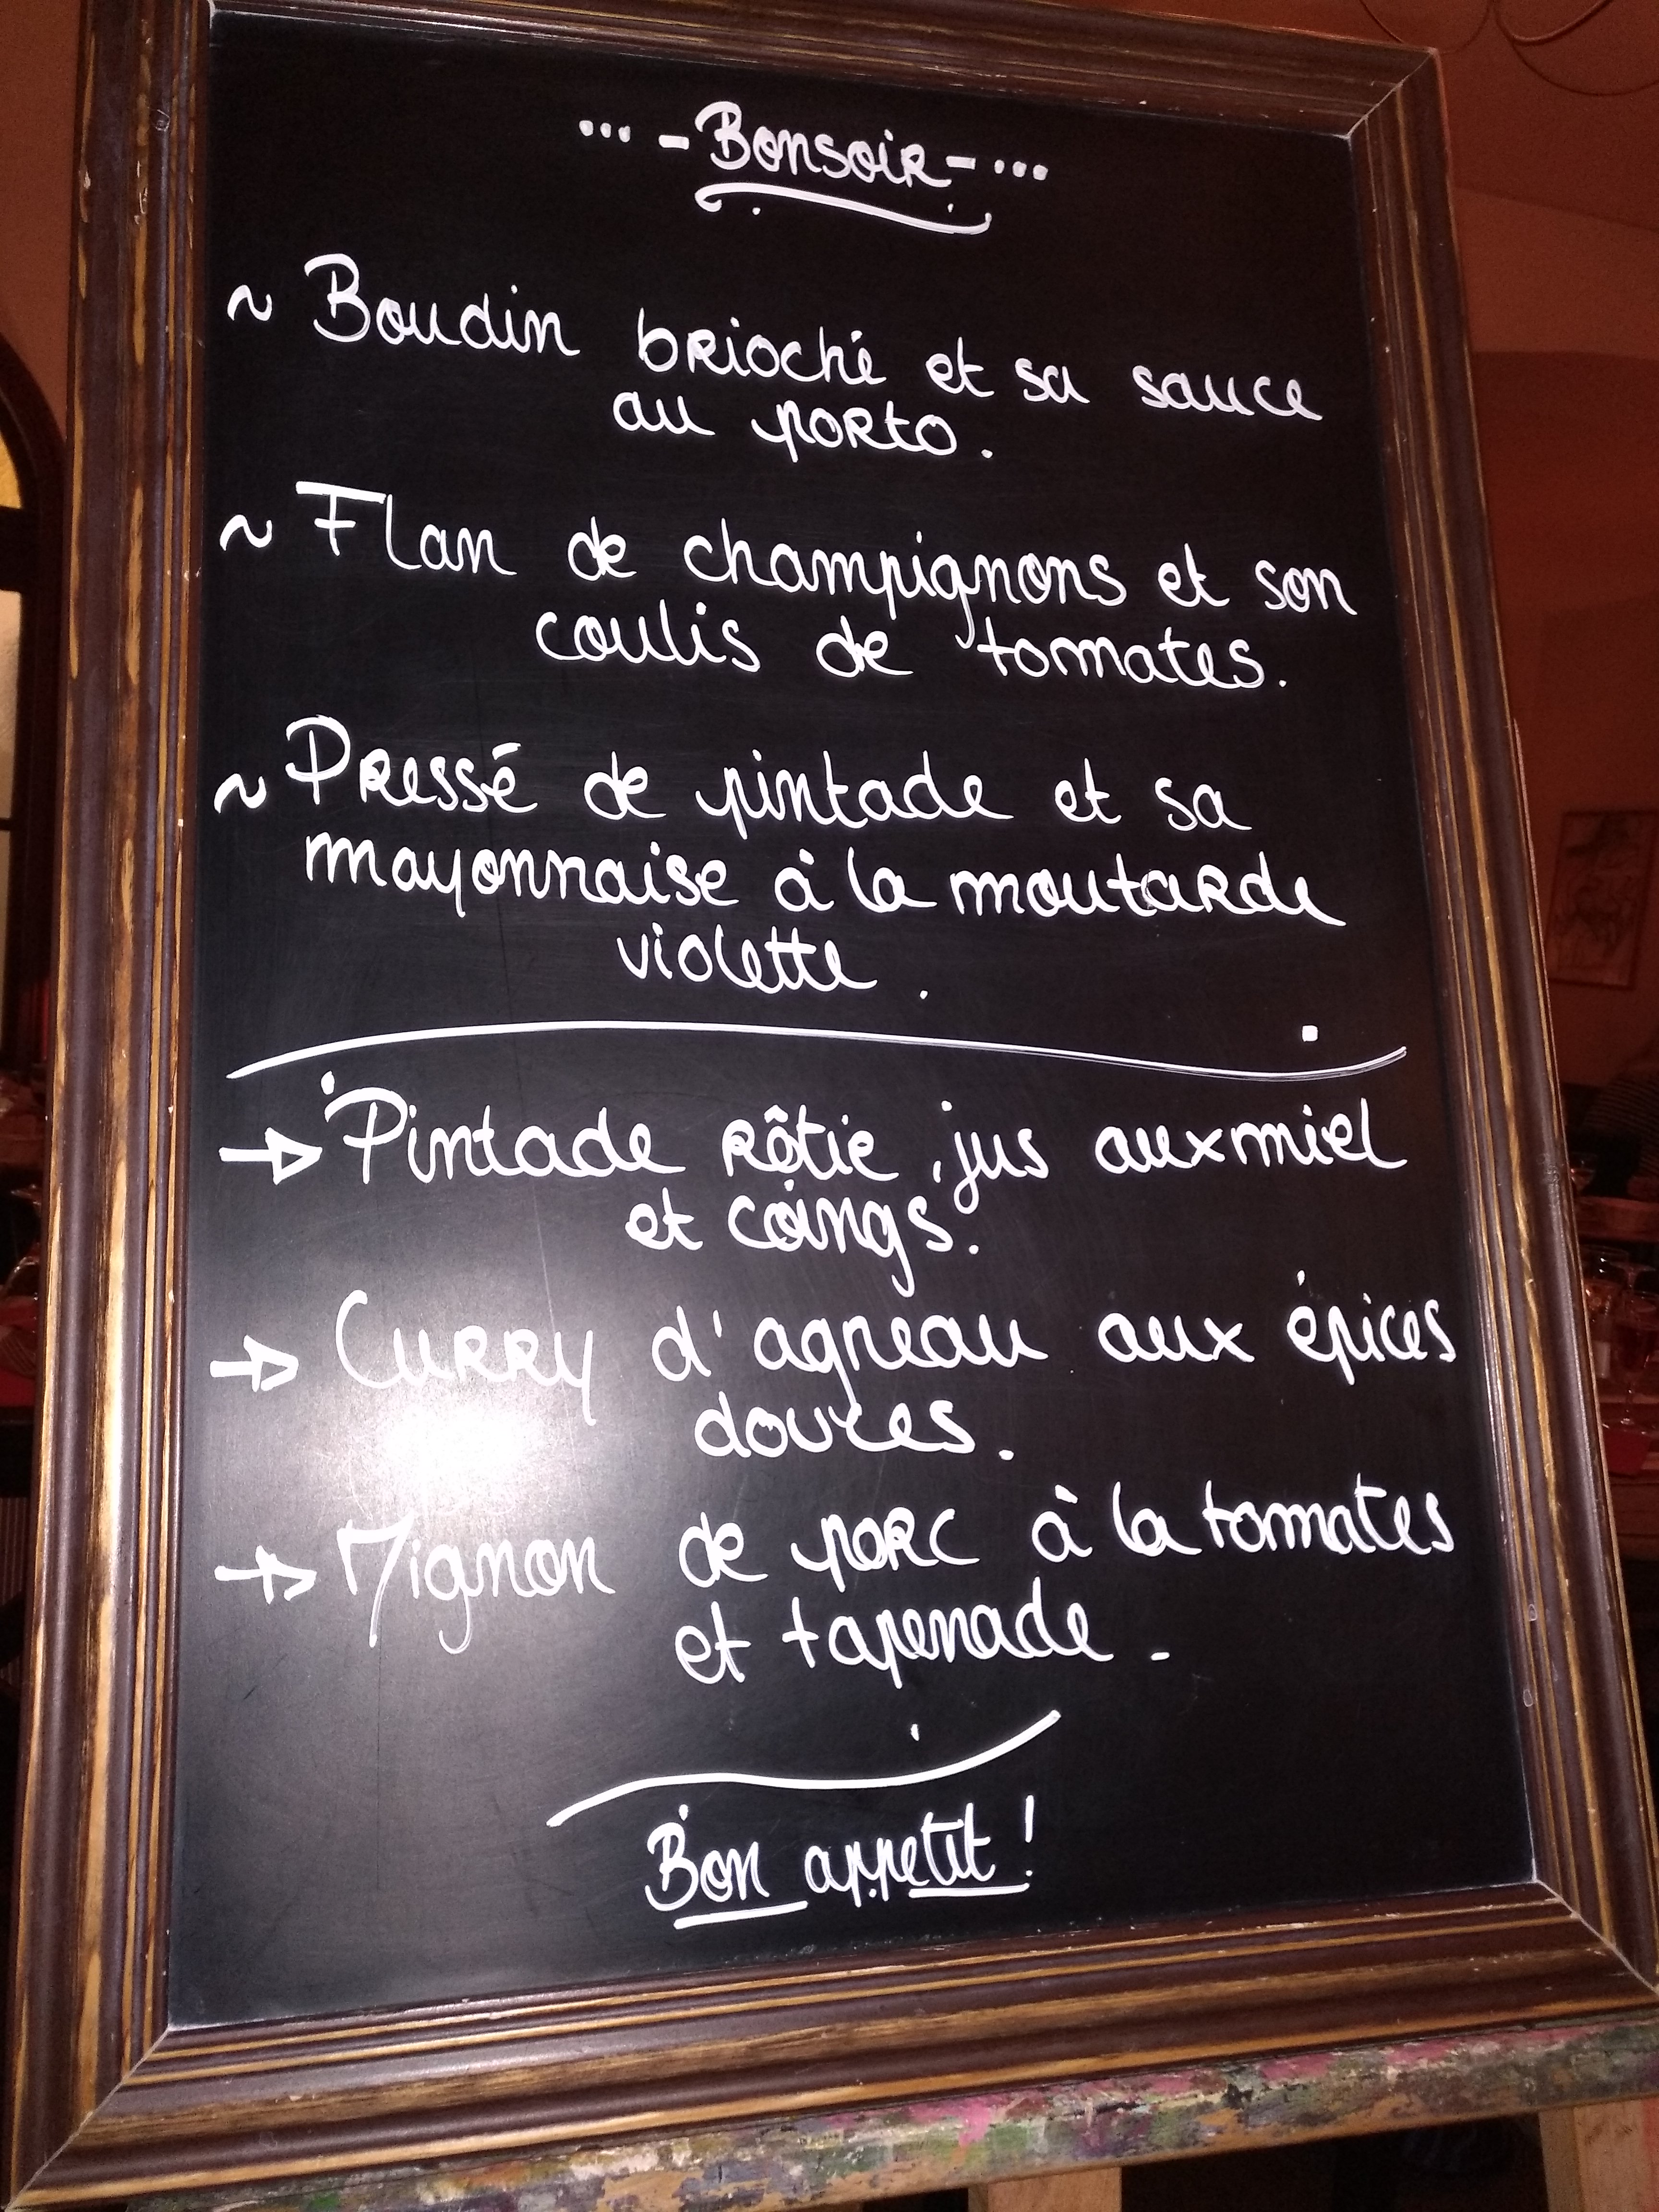 ... - Bonsoir - ...
~ Boudin brioché et sa sauce
au porto.
~ Flan de champignons et son
coulis de tomates.
~ Pressé de pintade et sa
mayonnaise à la moutarde
violette.
→ Pintade rôtie, jus aux miel
et coings.
→ Curry d'agneau aux épices
douces.
→ Mignon de porc à la tomates
et tapenade.
Bon appetit !